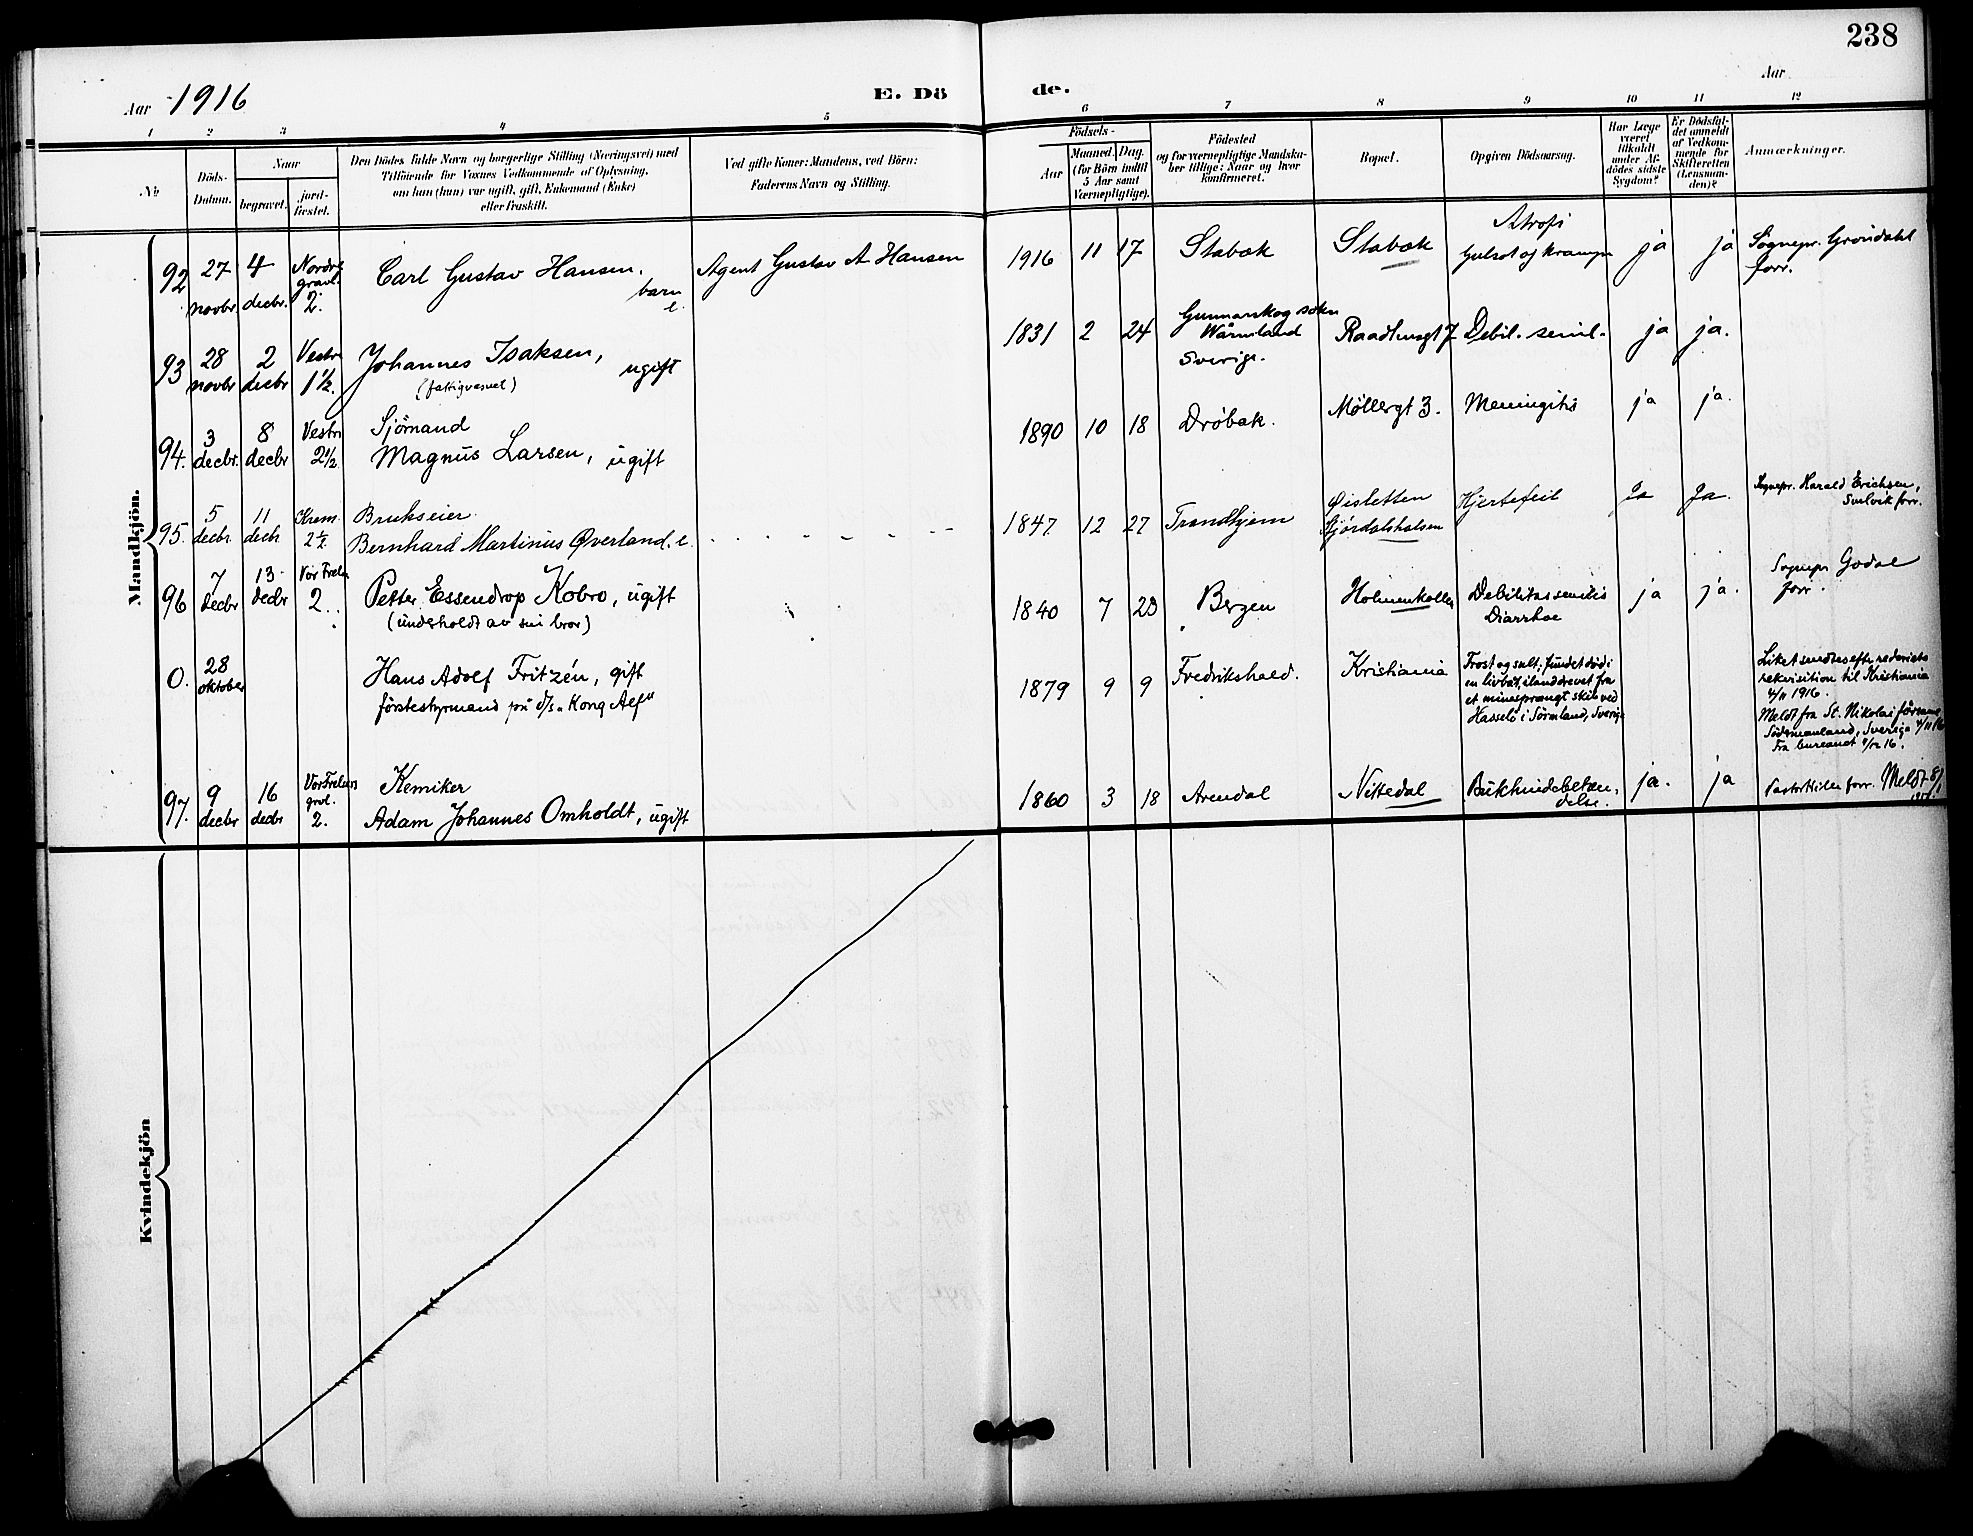 238
Aar 1916
E. Dö
de.
Aar
1 2 3 4 5
6 7 8 9 10 11 12
No
Döds-
Datum.
Naar
begravet.
jord-
fæstet.
Den Dödes fulde Navn og borgerlige Stilling (Næringsvei) med
Tilföiende for Voxnes Vedkommende af Oplysning,
om han (hun) var ugift, gift, Enkemand (Enke)
eller fraskilt.
Ved gifte Koner: Mandens, ved Börn:
Faderens Navn og Stilling.
Födsels-
Aar
Maaned. Dag.
(for Börn indtil
5 Aar samt
Værnepligtige).
Födested
og for værnepligtige Mandska-
ber tillige: Naar og hvor
konfirmeret.
Bopæl.
Opgiven Dödsaarsag.
Har Læge
været
tilkaldt
under Af-
dödes sidste
Sygdom?
Er Dödsfal-
det anmeldt
af Vedkom-
mende for
Skifteretten
(Lensman-
den)?
Anmærkninger.
Mandkjön.
92
27
novbr
4
decbr.
Nordre
gravl.
2.
Carl Gustav Hansen,
barn
e.
Agent Gustav A Hansen
1916 11 17
Stabæk
Stabæk
Atrofi
Gulsot og krampe
ja
ja
Sognepr. Gröndahl
forr.
93
28
novbr
2
decbr
Vestre
1½.
Johannes Isaksen,
ugift
(fattigvæsnet)
1831 2 24
Gunnarskog sokn
Wärmland
Sverige.
Raadhusgt 7
Debil. senil.
ja
ja.
94.
3
decbr.
8
decbr
Vestre
2½
Sjömand
Magnus Larsen, ugift
1890 10 18
Dröbak.
Møllergt 3.
Meningitis
ja
ja.
95.
5
decbr.
11
decbr
Krem.
2½.
Brukseier
Bernhard Martinius Øverland. e.
1847 12 27
Trondhjem
Øisletten
Stjørdalshalsen
Hjertefeil
Ja
Ja.
Sognepr. Harald Erichsen,
Svelvik forr.
96
7
decbr
13
decbr
Vor Frels
2.
Petter Essendrop Kobro, ugift
(underholdt av sin bror)
1840 7 23
Bergen
Holmenkollen
Debilitas senilis
Diarrhoe
ja
ja.
Sognepr Godal
forr.
0.
28
oktober
Hans Adolf Fritzén, gift
förstestyrmand på d/s „Kong Alf"
1879 9 9
Fredrikshald.
Kristiania
Frost og sult; fundet död i
en livbåt, ilanddrevet fra
et minesprængt skib ved
Hasselö i Sörmland, Sverige
Liket sendtes efter rederiets
rekvisition til Kristiania
4/11 1916.
Meldt fra St. Nikolai församl.
Södermanland, Sverige
Fra bureauet
97.
9
decbr
16
decbr
Vor Frelsers
gravl.
2.
Kemiker
Adam Johannes Omholdt, ugift
1860 3 18
Arendal
Nittedal
Bukhindebetæn-
delse.
ja.
ja
Pastor
forr.
Meldt 8/1
Kvindekjön